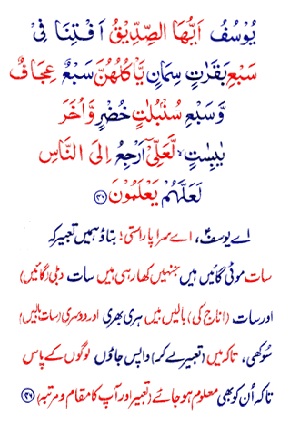 يُوْسُفُ اَيُّهَا الصِّدِّيْقُ اَفْتِنَا فِىْ
سَبْعِ بَقَرٰتٍ سِمَانٍ يَّاْكُلُهُنَّ سَبْعٌ عِجَافٌ
وَّسَبْعِ سُنْۢبُلٰتٍ خُضْرٍ وَّاُخَرَ
يٰبِسٰتٍ ۙ لَّعَلِّىْۤ اَرْجِعُ اِلَى النَّاسِ
لَعَلَّهُمْ يَعْلَمُوْنَ
اے یوسفؑ، اے سراپا راستی! بتاؤ ہمیں تعبیر کہ
سات موٹی گائیں ہیں جنہیں کھا رہی ہیں سات دبلی (گائیں)
اور سات (اناج کی) بالیں ہیں ہری بھری اور دوسری (سات بالیں)
سُوکھی، تاکہ میں (تعبیر لے کر) واپس جاؤں لوگوں کے پاس
تاکہ اُن کو بھی معلوم ہو جائے (تعبیر اور آپ کا مقام و مرتبہ)